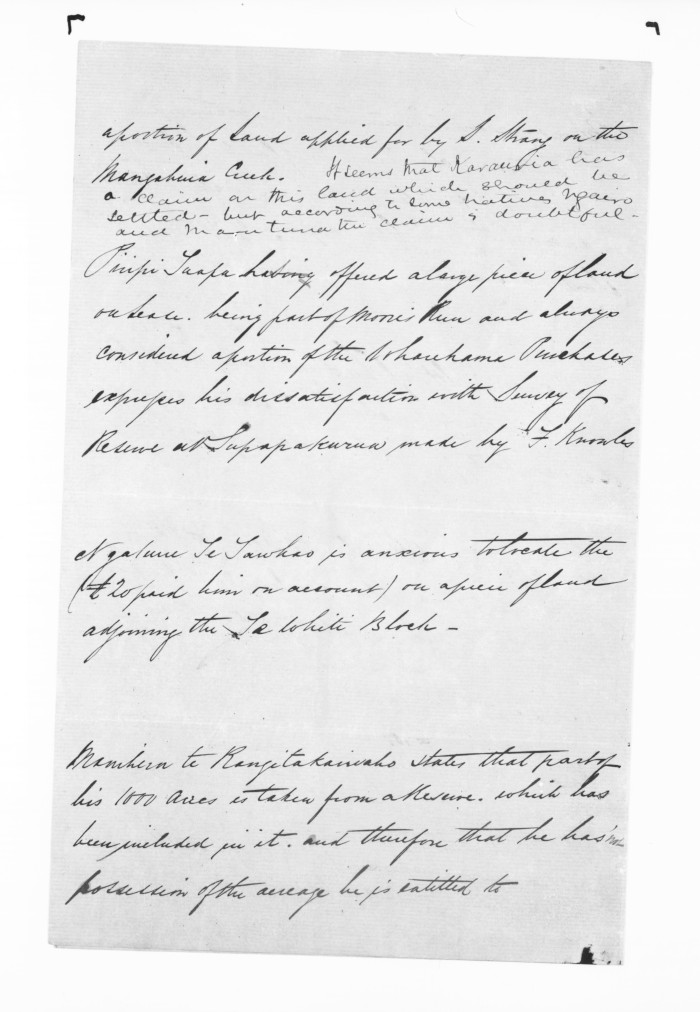 a portion of Land applied for by S. Strang on the
Mangahuia Creek. It seems that Karauria has
a claim on this land which should be
settled - but according to some natives Ngairo
and Maitu the claim is doubtful -
Piripi Iuapa having offered a large piece of land
on lease. being part of Morris Run and always
considered a portion of the Wharehama Purchases
expresses his dissatisfaction with Survey of
Reserve at Tupapakurua made by F. Knowles
Ngatuere Te Tawhao is anxious to locate the
(£20 paid him on account) on a piece of land
adjoining the Te Whiti Block -
Manihera te Rangitakaiwaho states that part of
his 1000 Acres is taken from a Reserve. which has
been included in it. and therefore that he has
possession of the acreage he is entitled to